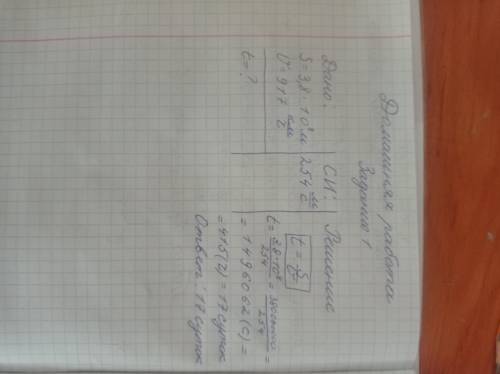 Домашняя работа
Задание 1
Дано: СИ: Решение
S = 3,8 · 10⁸ м
V = 917 км/ч 254 м/с
t - ?
t = S/V
t = 3,8 · 10⁸/254 = 380000000/254 =
= 1496062 (с) =
= 415 (ч) = 17 суток
Ответ: 17 суток